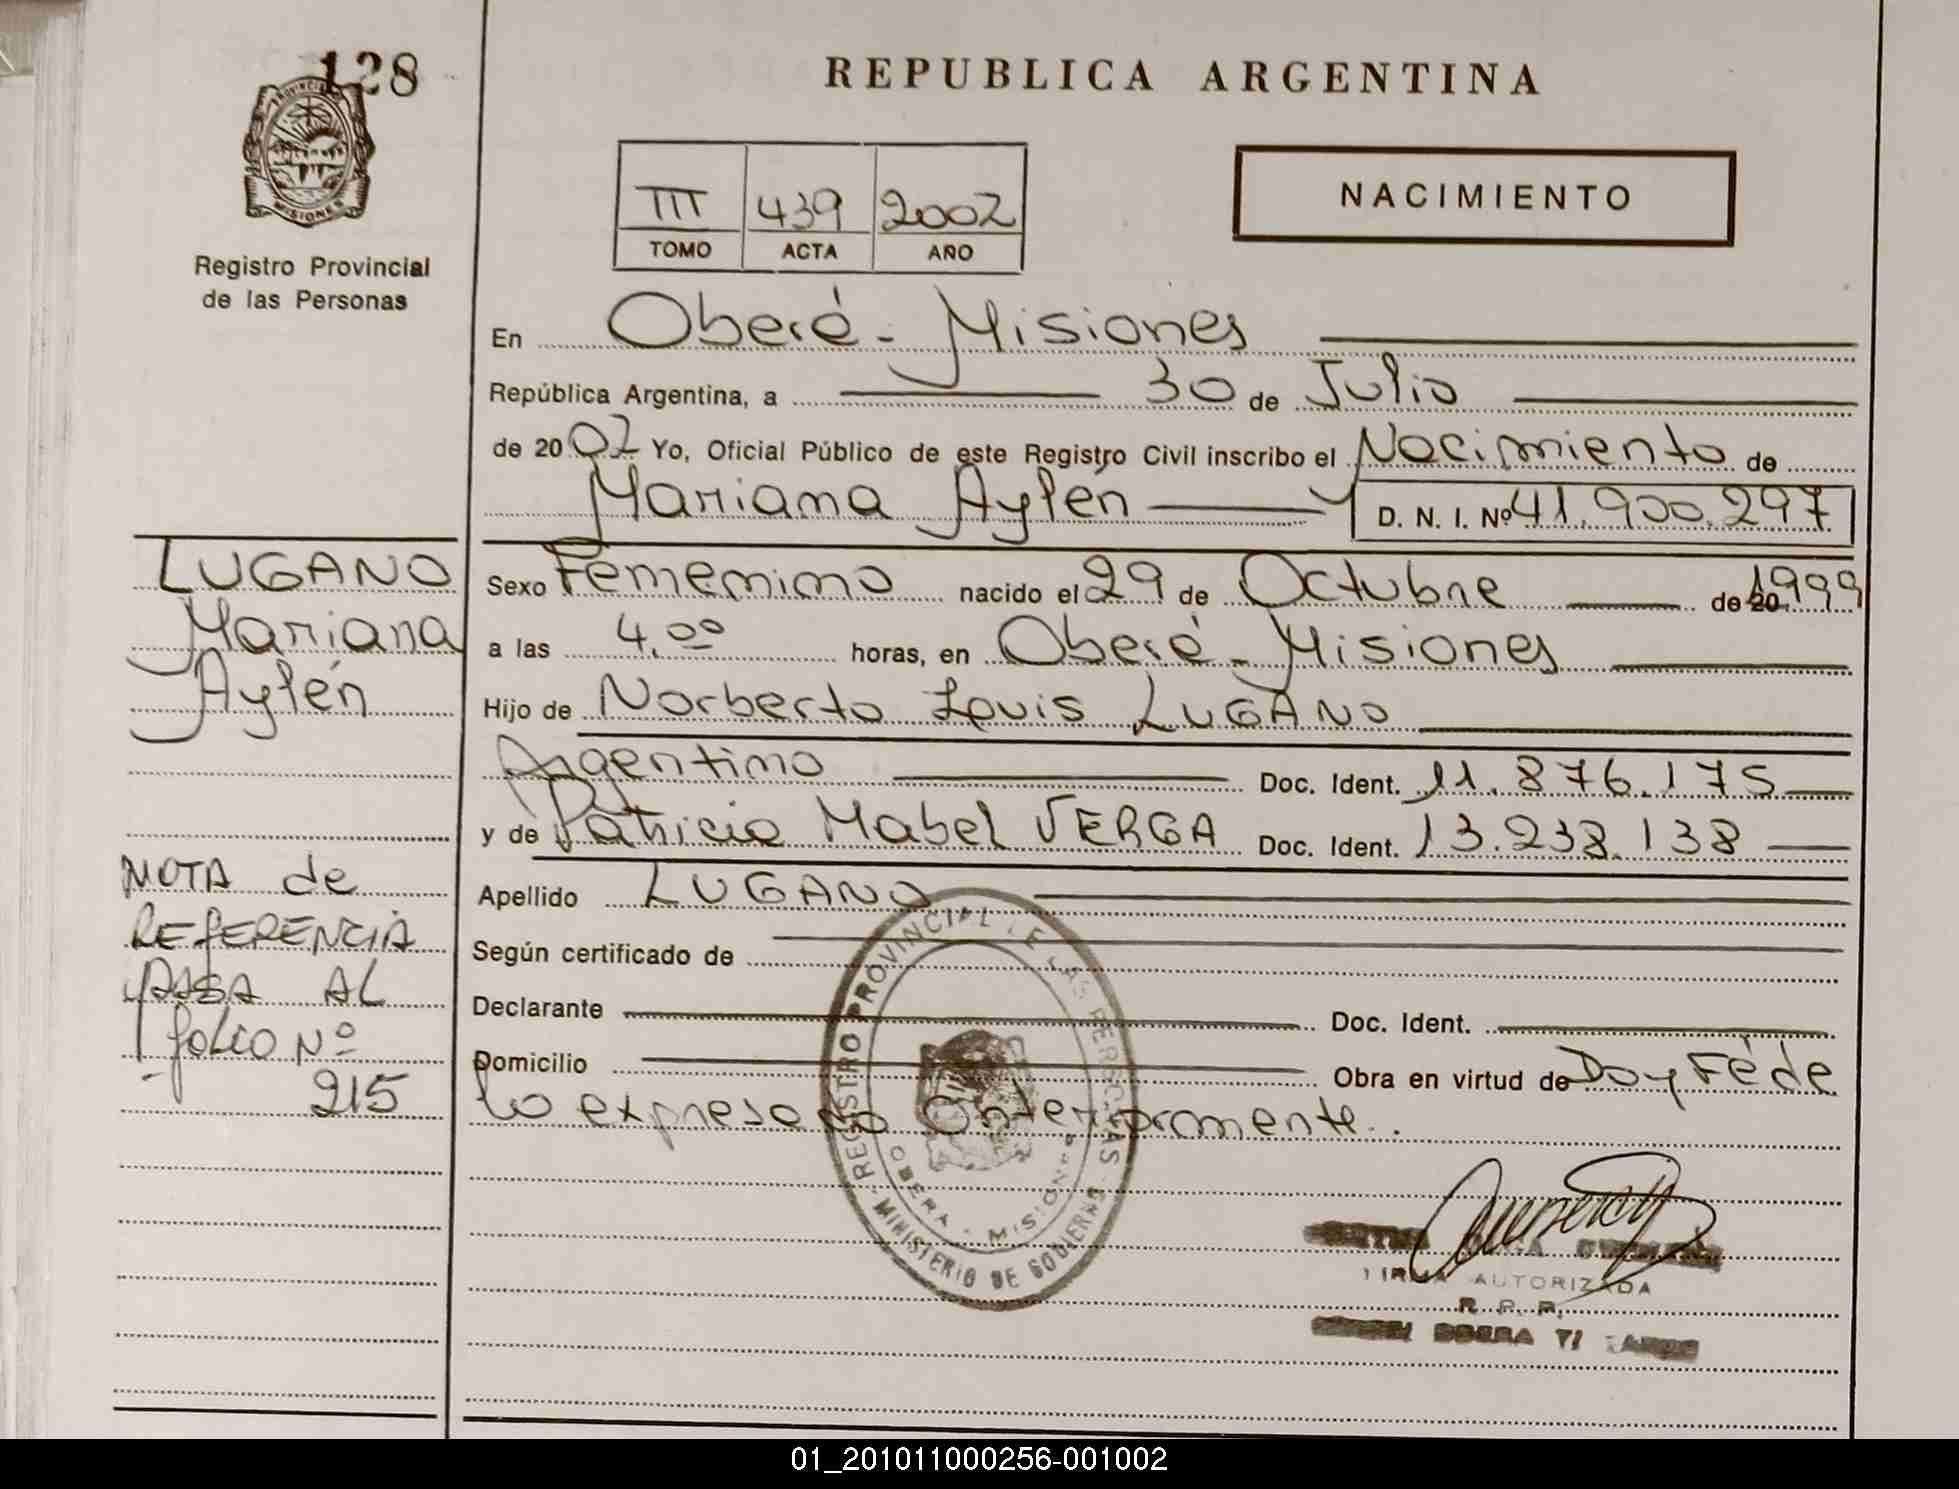 128
PROVINCIA
MISIONES
Registro Provincial
de las Personas
REPUBLICA ARGENTINA
III 439 2002
TOMO ACTA AÑO
NACIMIENTO
En Oberá - Misiones
República Argentina, a 30 de Julio
de 20 02 Yo, Oficial Público de este Registro Civil inscribo el Nacimiento de
Mariana Aylén D. N. I. Nº 41.900.297
Sexo Femenino nacido el 29 de Octubre de 20 1999
a las 4,00 horas, en Oberá - Misiones
Hijo de Norberto Louis LUGANO
Argentino Doc. Ident. 11.876.175
y de Patricia Mabel VERGA Doc. Ident. 13.238.138
Apellido LUGANO
Según certificado de
Declarante Doc. Ident.
Domicilio Obra en virtud de Doy Fé de
lo expresado anteriormente.
LUGANO
Mariana
Aylén
NOTA de
REFERENCIA
PASA AL
folio Nº
215
REGISTRO PROVINCIAL DE LAS PERSONAS
OBERA - MISIONES
MINISTERIO DE GOBIERNO
FIRMA AUTORIZADA
R. P. P.
OBERA
01_201011000256-001002